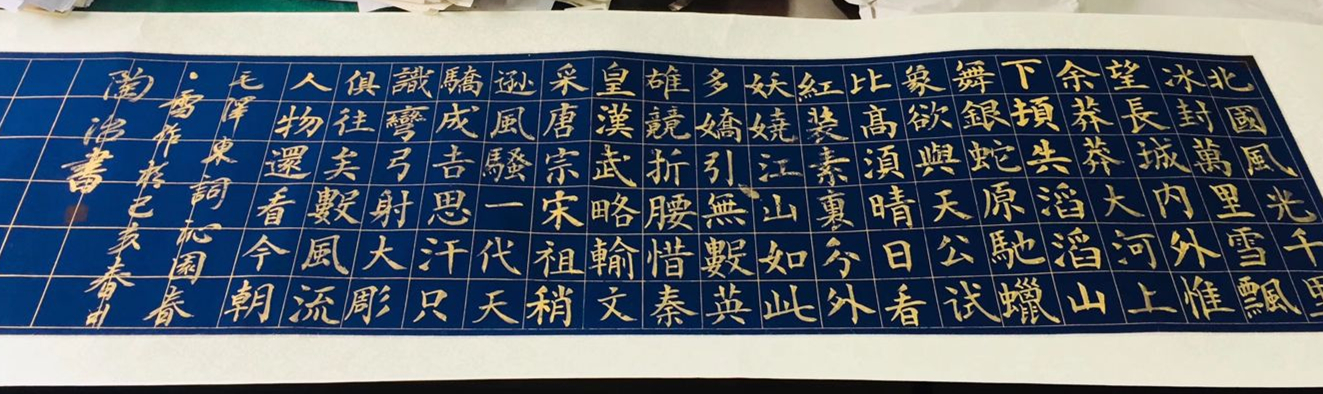 北國風光千里
冰封萬里雪飄
望長城内外惟
余莽莽大河上
下頓失滔滔山
舞銀蛇原馳蠟
象欲與天公试
比高須晴日看
紅装素裹分外
妖嬈江山如此
多嬌引無數英
雄競折腰惜秦
皇漢武略輸文
采唐宗宋祖稍
逊風騷一代天
驕成吉思汗只
識彎弓射大彫
俱往矣數風流
人物還看今朝
毛澤東詞沁園春
·雪作於己亥春月
陶冶書